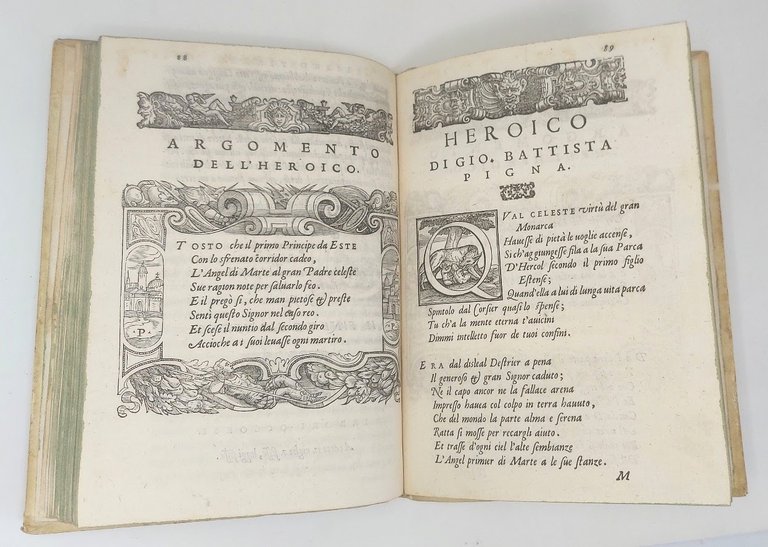 88
ARGOMENTO
DELL'HEROICO.
TOSTO che il primo Principe da ESTE
Con lo sfrenato corridor cadeo,
L'Angel di Marte al gran Padre celeste
Sue ragion note per saluarlo feo.
E il pregò sì, che man pietose & preste
Sentì questo Signor nel caso reo.
Et scese il nuntio dal secondo giro
Accioche a i suoi leuasse ogni martiro.
P.
89
HEROICO
DI GIO. BATTISTA
PIGNA.
QVAL CELESTE virtù del gran
Monarca
Hauesse di pietà le uoglie accense,
Sì ch'aggiungesse fila a la sua Parca
D'Hercol secondo il primo figlio
Estense;
Quand'ella a lui di lunga vita parca
Spintolo dal Corsier quasi lo spense;
Tu ch'a la mente eterna t'auicini
Dimmi intelletto fuor de tuoi confini.
ERA dal disleal Destrier a pena
Il generoso & gran Signor caduto;
Ne il capo ancor ne la fallace arena
Impresso hauea col colpo in terra hauuto,
Che del mondo la parte alma e serena
Ratta si mosse per recargli aiuto.
Et trasse d'ogni ciel l'alte sembianze
L'Angel primier di Marte a le sue stanze.
M